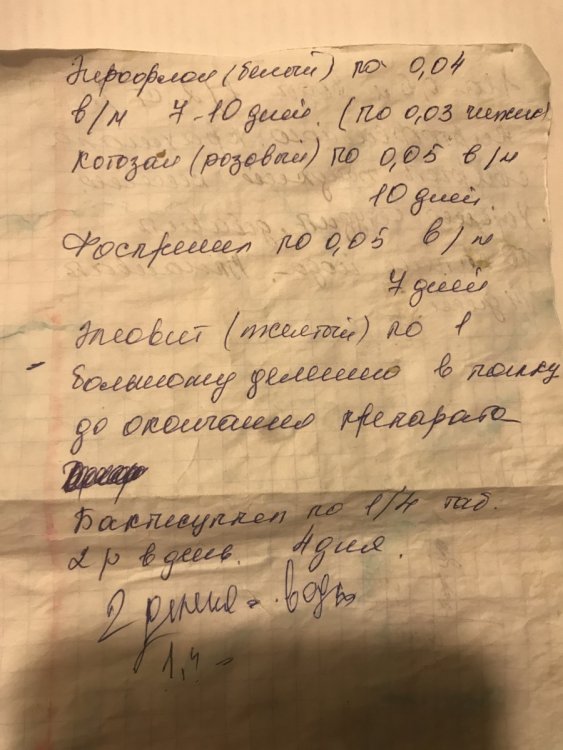 Энрофлон (белый) по 0,04
в/м 7-10 дней. (по 0,03 чижик)
Котозал (розовый) по 0,05 в/м
10 дней
Фоспренил по 0,05 в/м
7 дней
Элеовит (желтый) по 1
большому делению в поилку
до окончания препарата
Бактисуптил по 1/4 таб.
2 р в день. 4 дня.
2 воды
1,4